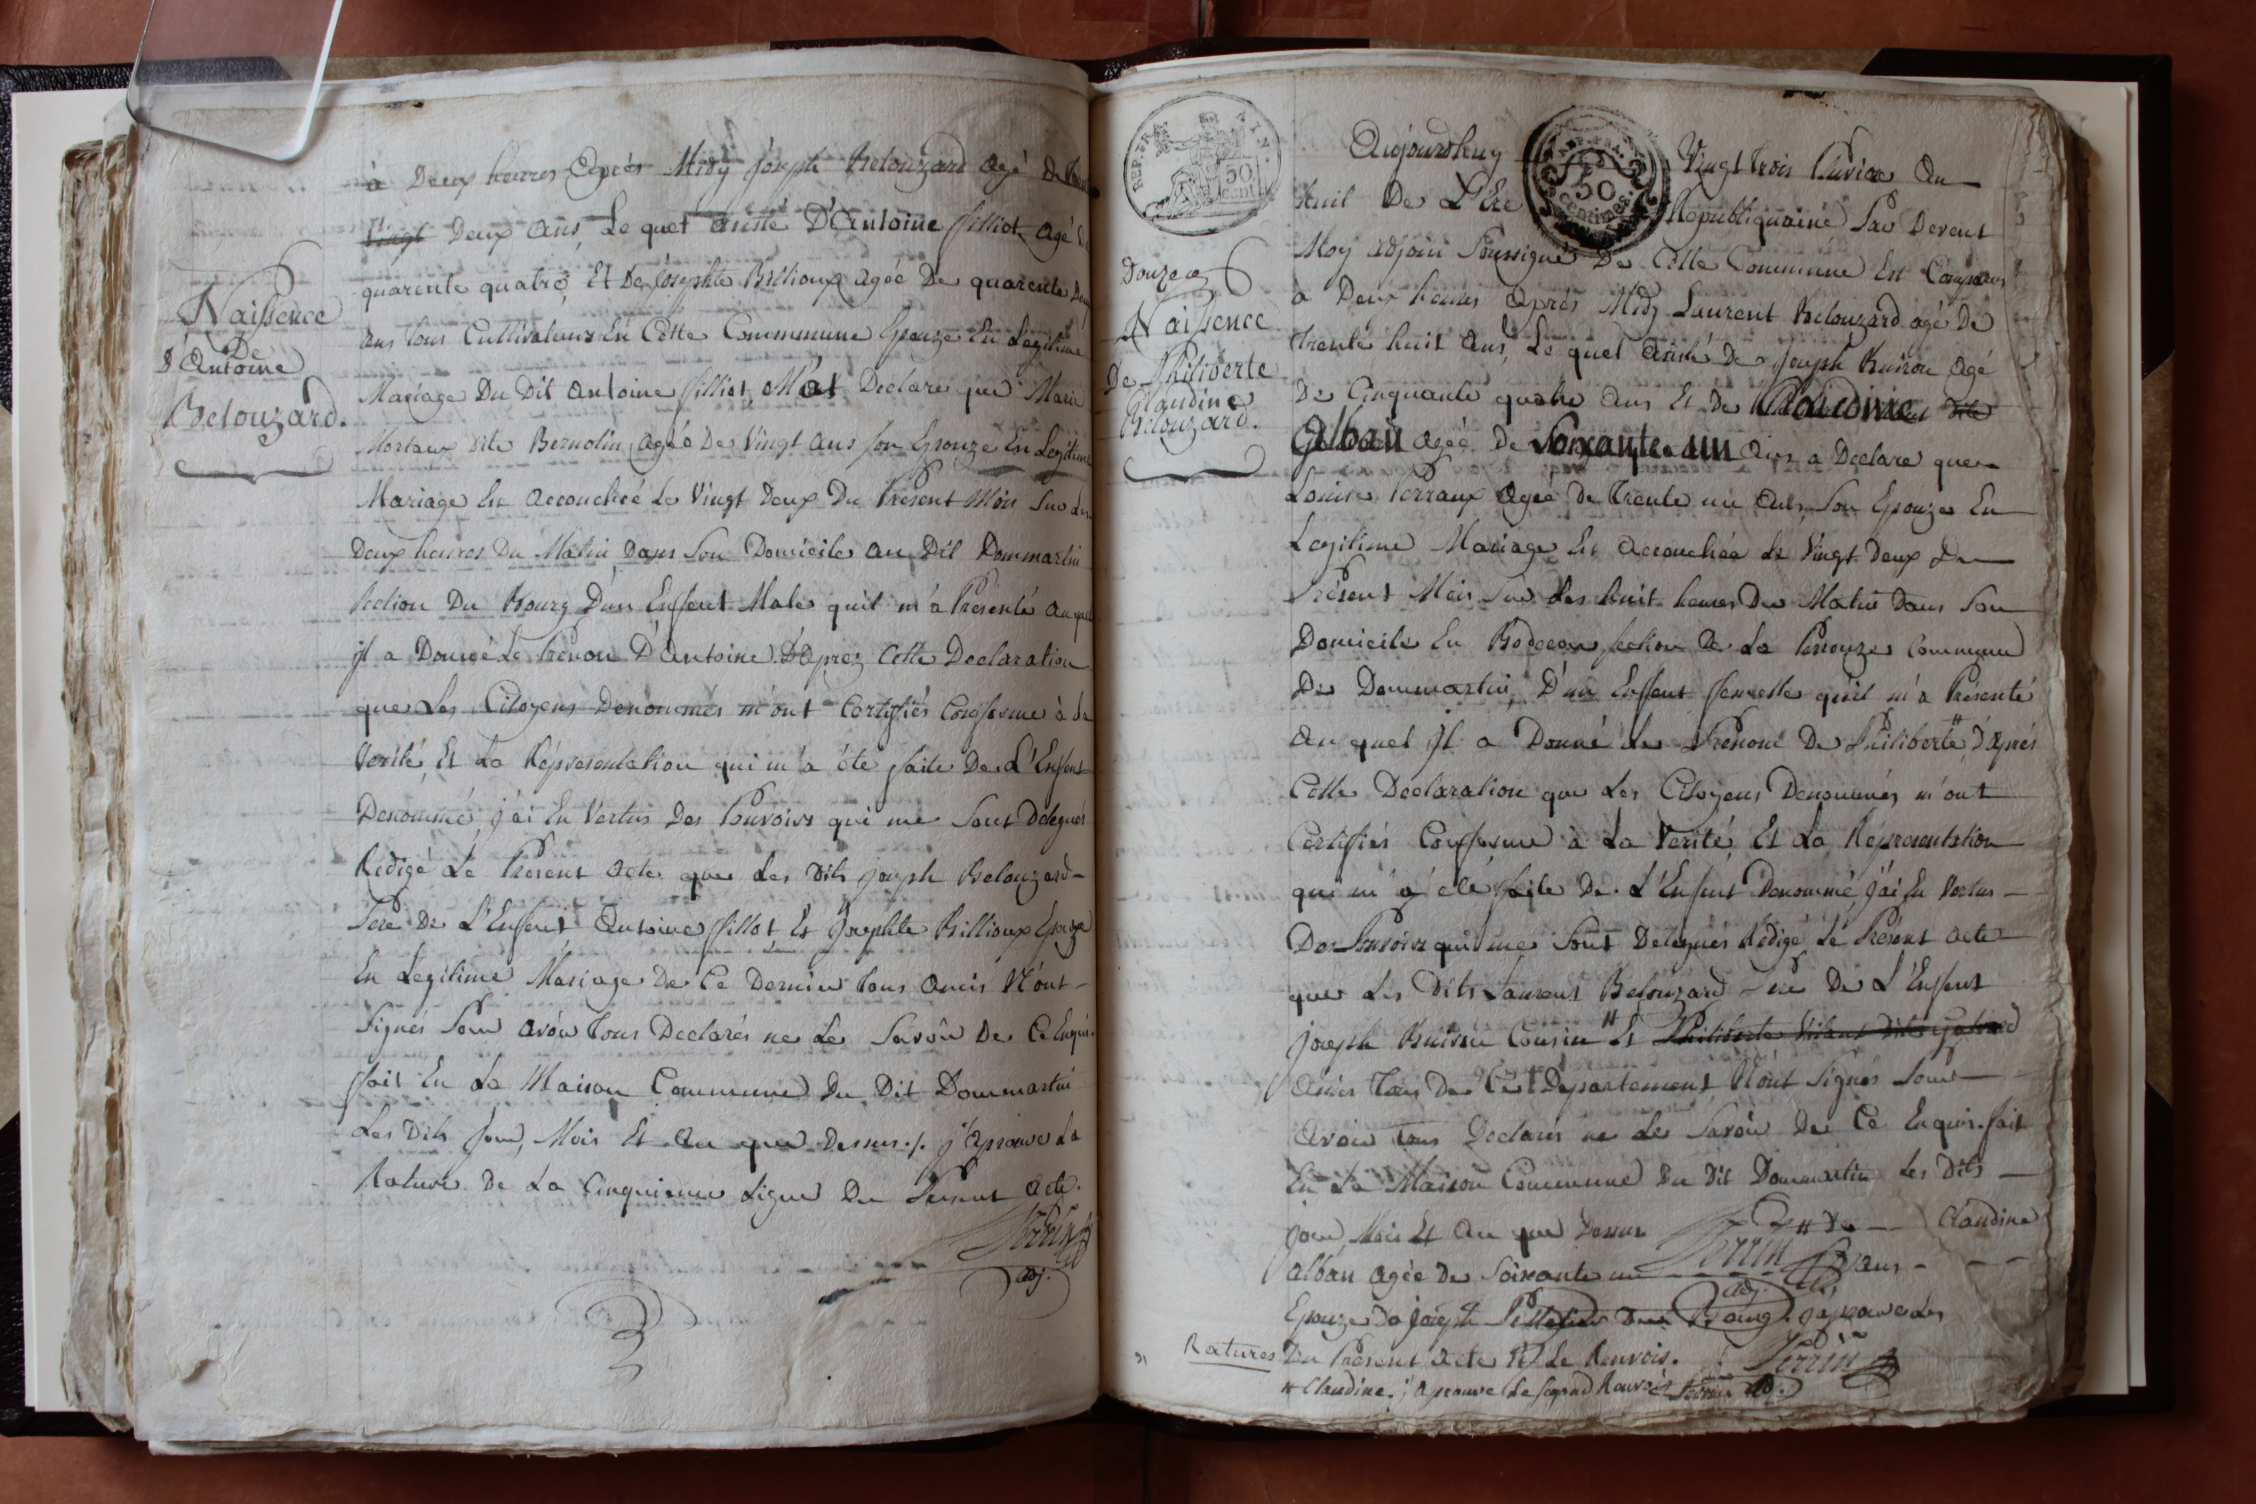 à Deux heures Après Midy joseph Belouzard agé De
Vingt Deux ans, Le quel assisté D'Antoine filliot agé De
quarente quatre, Et De josephte Billioux agée De quarente Deux
ans tous Cultivateurs En Cette Commmune Epouze En Legitime
Mariage Du Dit Antoine filliot M'at Declaré que Marie
Mortaux Dite Bernolin agée De Vingt ans son Epouze En Legitime
Mariage Est accouchée Le Vingt Deux Du Présent Mois Sur Les
Deux heures Du Matin Dans Son Domicile au Dit Dommartin
Section Du Bourg D'un Enfent Male quil m'a Présenté auquel
jl a Donné Le Prénom D'Antoine. D'Aprez Cette Declaration
que Les Citoyens Denommés m'ont Certifiés Conforme à La
Verité, Et La Répresentation qui m'a été faite De L'Enfent
Denommé, j'ai En Vertus Des Pouvoirs qui me Sont Delegués
Redigé Le Présent acte que Les Dits joseph Belouzard
Pere De L'Enfent Antoine filliot Et josephte Billioux Epouze
En Legitime Mariage De Ce Dernier tous amis N'ont
Signés Pour avoir tous Declarés ne Le Savoir De Ce Enquis.
fait En La Maison Commune Du Dit Dommartin
Les Dits jour, Mois Et an que Dessus ./. j'aprouve La
Rature De La Cinquieme Ligne Du Present acte.
Perrin
adj.
Naissence
De
d'Antoine
Belouzard.
REP. FRA
50
cent
Douze
Naissence
De Philiberte
Claudine
Belouzard.
Aujourdhuy Vingt trois Pluviose an
huit De L'Ere Republiquaine Par Devent
50
Centimes
Moy adjoin Soussigné De Cette Commune Est Comparus
a Deux heures Aprés Midy Laurent Belouzard agé De
trente huit ans, Le quel assisté De joseph Buiron agé
De Cinquante quatre ans Et De Claudine Dite
Alban agée De Soixante un ans a Declaré que
Louise Perraux agée De trente un ans, Son Epouze En
Legitime Mariage Est accouchée Le Vingt Deux Du
Présent Mois Sur Les huit heures Du Matin Dans Son
Domicile En section De La Perouze Commune
De Dommartin, D'un Enfent femelle quil m'a Présenté
au quel jl a Donné Le Prénom De Philiberte " d'aprés
Cette Declaration que Les Citoyens Denommés m'ont
Certifiés Conforme à La Verité Et La Répresentation
qui m'a été faite De L'Enfent Denommé, j'ai En Vertus
Des Pouvoirs qui me Sont Delegués Rédigé Le Présent acte
que Les Dits Laurent Belouzard De L'Enfent
joseph Buiron Cousin " Et Philiberte Dite
amis tous De Ce Departement N'ont Signés Pour
avoir tous Declarés ne Le Savoir De Ce Enquis. fait
En La Maison Commune Du Dit Dommartin Les Dits
jour, Mois Et an que Dessus Perrin " De Claudine
adj.
alban agée De Soixante un ans
Epouze De joseph Du Bourg. j'aprouve Les
Ratures Du Présent acte Et Le Renvois. Perrin
" Claudine. j'aprouve Le Segond Renvois Perrin adj.